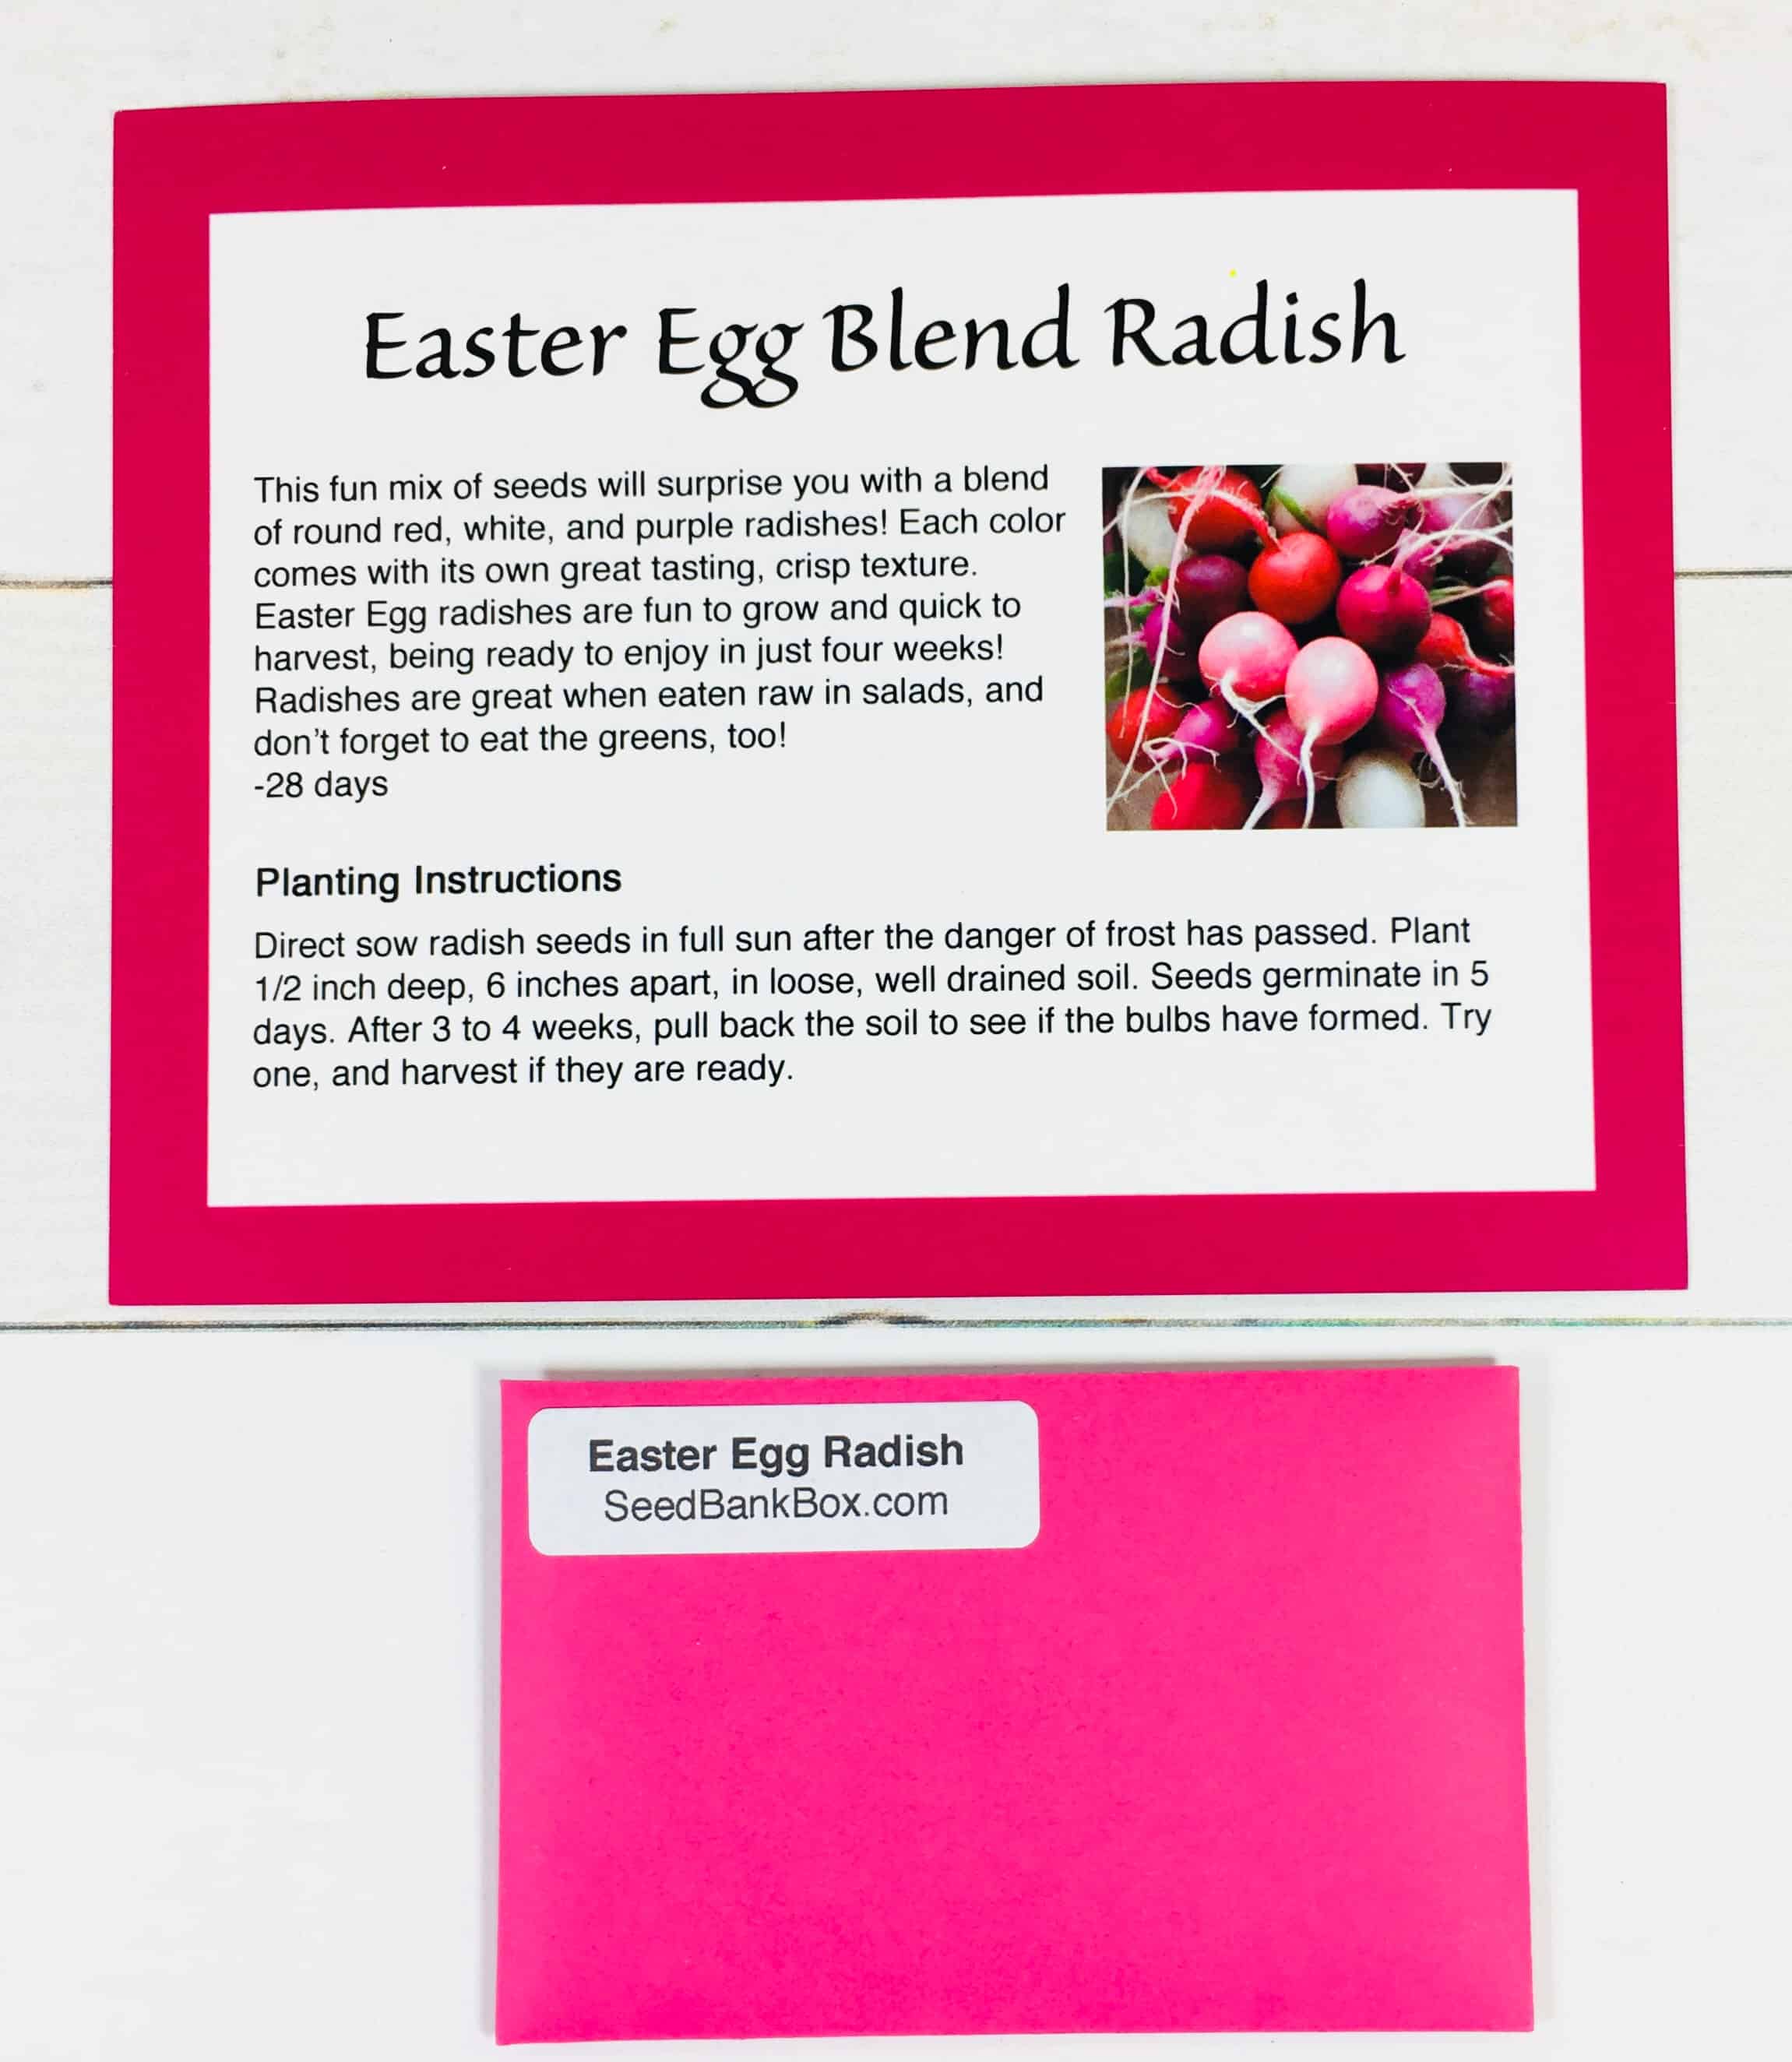 Easter Egg Blend Radish
This fun mix of seeds will surprise you with a blend
of round red, white, and purple radishes! Each color
comes with its own great tasting, crisp texture.
Easter Egg radishes are fun to grow and quick to
harvest, being ready to enjoy in just four weeks!
Radishes are great when eaten raw in salads, and
don't forget to eat the greens, too!
-28 days
Planting Instructions
Direct sow radish seeds in full sun after the danger of frost has passed. Plant
1/2 inch deep, 6 inches apart, in loose, well drained soil. Seeds germinate in 5
days. After 3 to 4 weeks, pull back the soil to see if the bulbs have formed. Try
one, and harvest if they are ready.
Easter Egg Radish
SeedBankBox.com